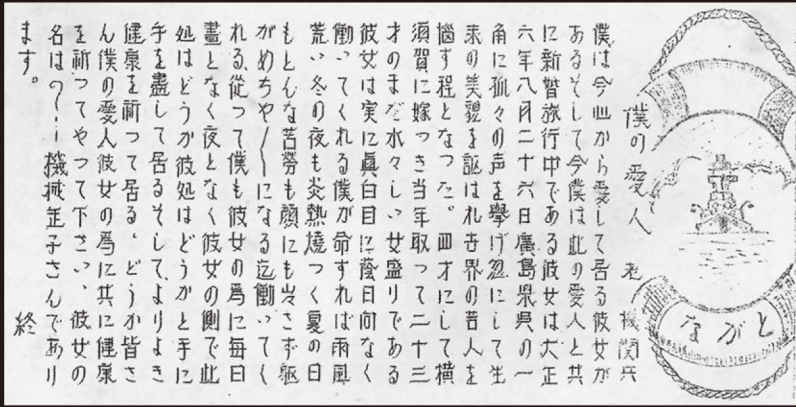 ながと
僕の愛人
老機関兵
僕は今心から愛して居る彼女が
あるそして今僕は此の愛人と共
に新婚旅行中である彼女は大正
六年八月二十六日廣島県呉の一
角に狐々の声を擧げ忽にして生
来の美貌を謳はれ世界の若人を
悩す程となつた。四才にして横
須賀に嫁つき当年取って二十三
才のまだ水々しい女盛りである
彼女は実に眞白目に蔭日向なく
働いてくれる僕が命すれば雨風
荒い冬の夜も炎熱燒つく夏の日
もどんな苦勞も顔にも出さず躯
がめちや〱になる迄働いてく
れる従って僕も彼女の爲に毎日
晝となく夜となく彼女の側で此
処はどうか彼処はどうかと手に
手を盡して居るそしてよりよき
健康を祈って居る、どうか皆さ
ん僕の愛人彼女の爲に共に健康
を祈ってやって下さい、彼女の
名は機械正子さんであり
ます。
終